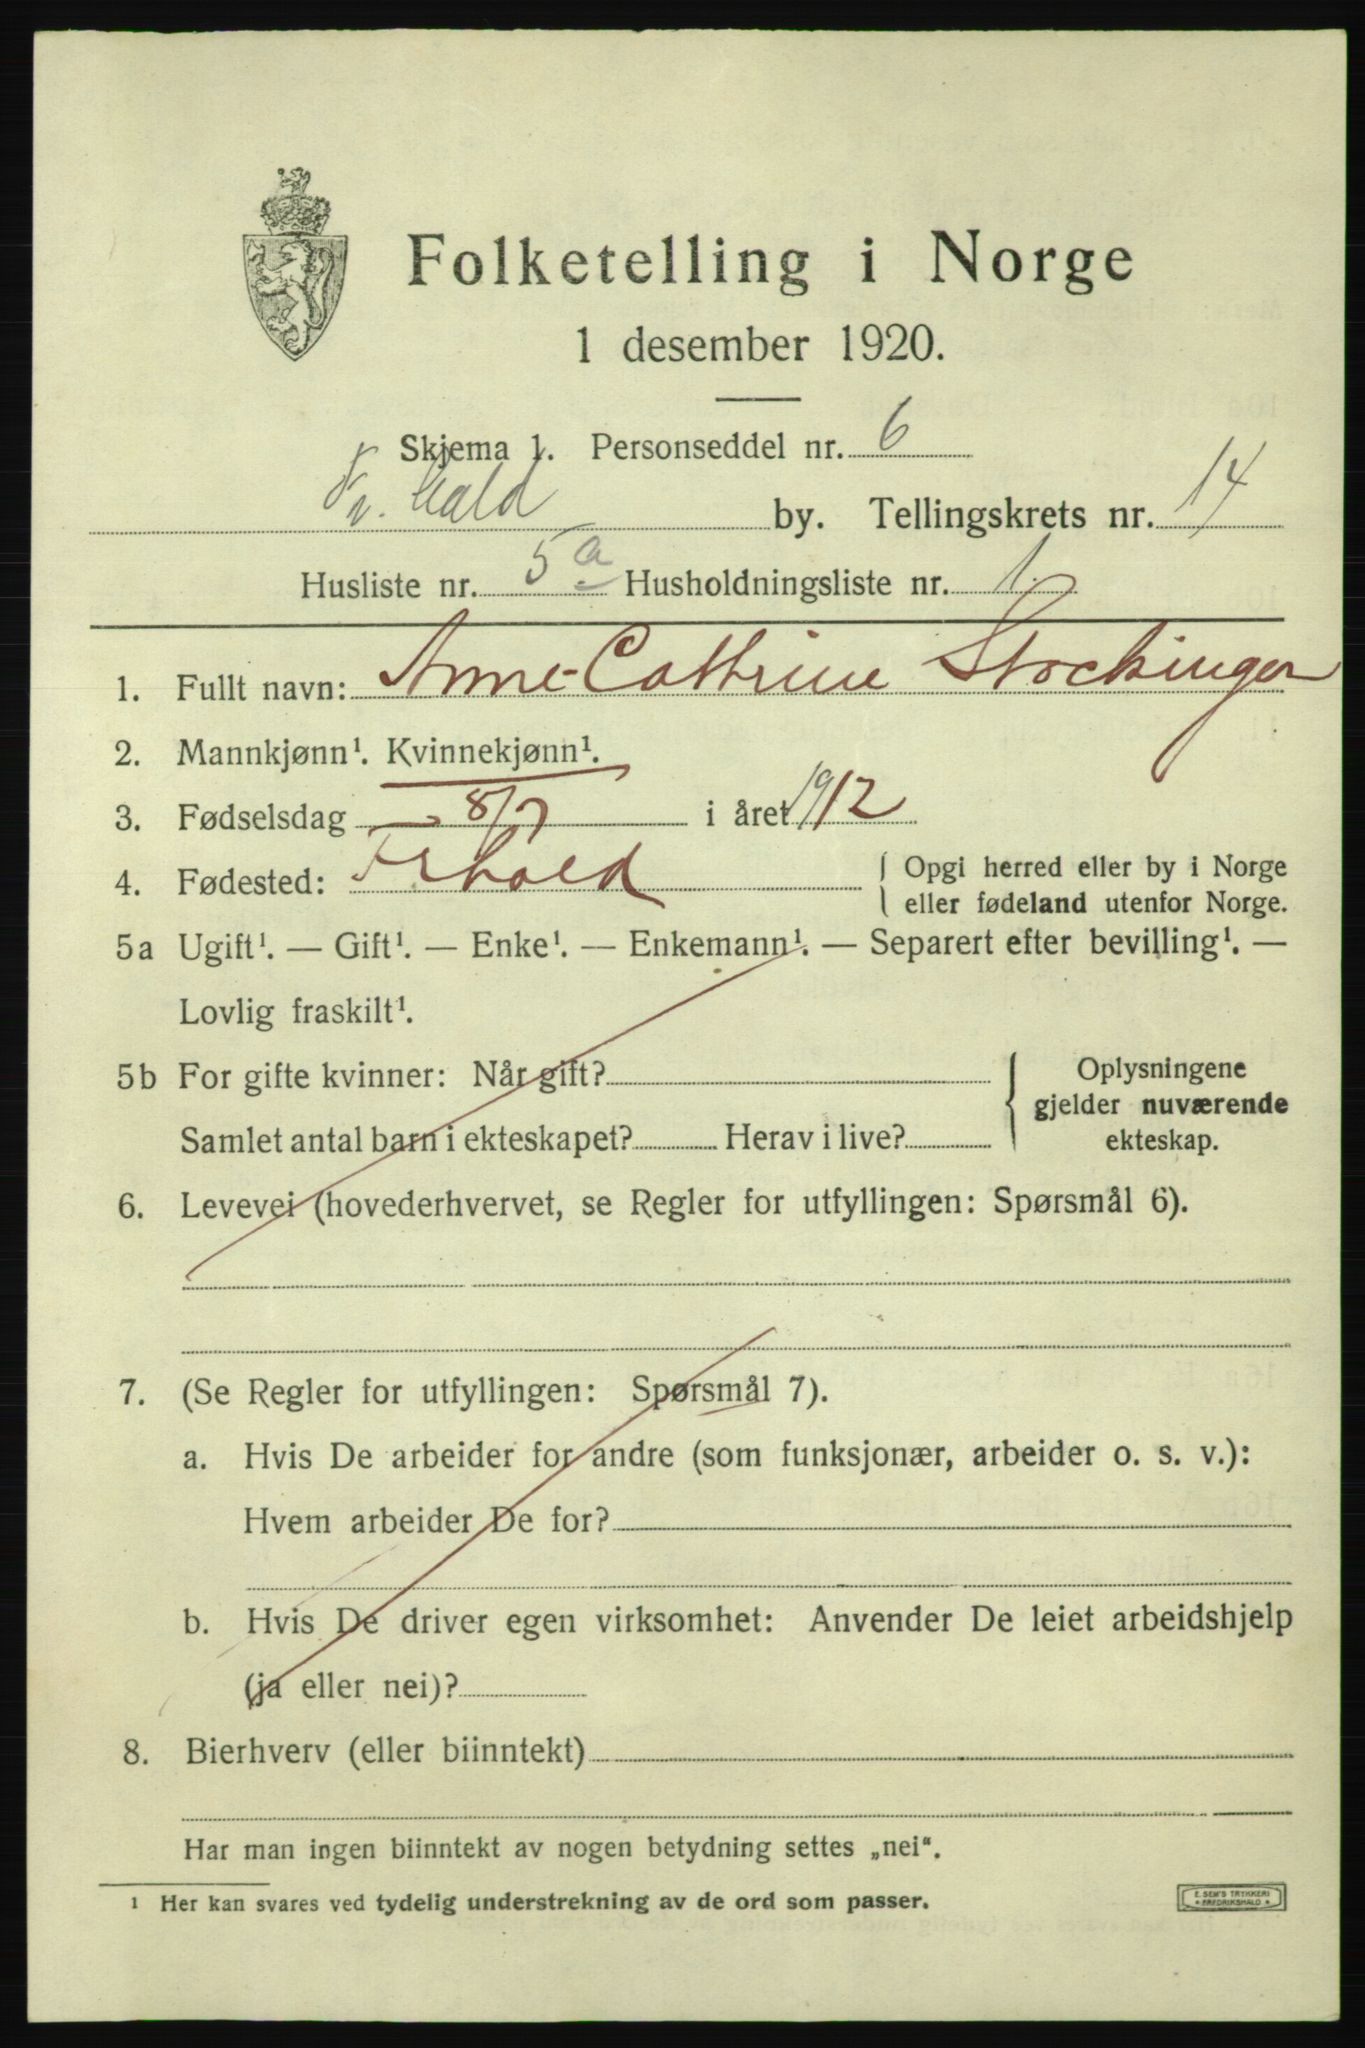 Folketelling i Norge
1 desember 1920.
Skjema 1. Personseddel nr. 6
Fr. hald by. Tellingskrets nr. 14
Husliste nr. 5a Husholdningsliste nr. 1.
1. Fullt navn: Anne-Cathrine Stockinger
2. Mannkjønn¹. Kvinnekjønn¹.
3. Fødselsdag 8/7 i året 1912
4. Fødested: Frhald { Opgi herred eller by i Norge
eller fødeland utenfor Norge.
5a Ugift¹. — Gift¹. — Enke¹. — Enkemann¹. — Separert efter bevilling¹. —
Lovlig fraskilt¹.
5b For gifte kvinner: Når gift? { Oplysningene
gjelder nuværende
Samlet antal barn i ekteskapet? Herav i live? ekteskap.
6. Levevei (hovederhvervet, se Regler for utfyllingen: Spørsmål 6).
7. (Se Regler for utfyllingen: Spørsmål 7).
a. Hvis De arbeider for andre (som funksjonær, arbeider o. s. v.):
Hvem arbeider De for?
b. Hvis De driver egen virksomhet: Anvender De leiet arbeidshjelp
(ja eller nei)?
8. Bierhverv (eller biinntekt)
Har man ingen biinntekt av nogen betydning settes „nei".
¹ Her kan svares ved tydelig understrekning av de ord som passer.
E. SEM'S TRYKKERI
FREDRIKSHALD